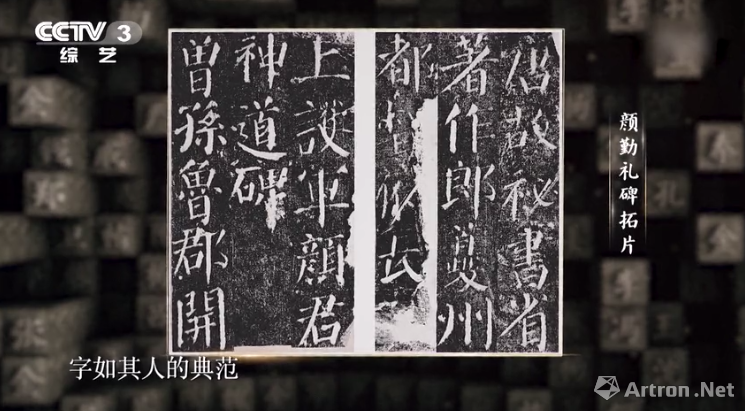 CCTV 3
综艺
唐故秘书省
著作郎夔州
都督府长
上護軍顏君
神道碑
曽孫魯郡開
颜勤礼碑拓片
字如其人的典范
Artron.Net